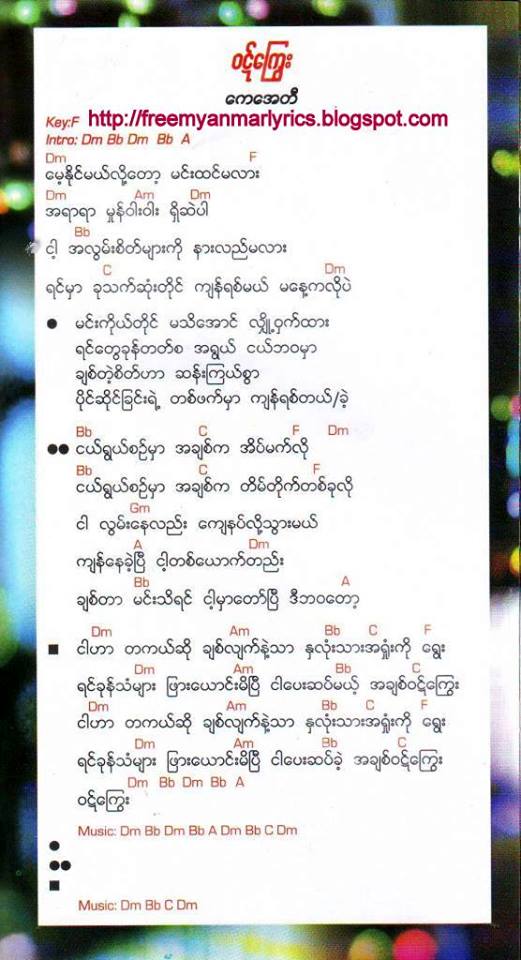 ဝဋ်ကြွေး
ကေအေတီ
Key:F http://freemyanmarlyrics.blogspot.com
Intro: Dm Bb Dm Bb A
Dm F
မေ့နိုင်မယ်လို့တော့ မင်းထင်မလား
Dm Am Dm
အရာရာ မှုန်ဝါးဝါး ရှိဆဲပါ
Bb
ငါ့ အလွမ်းစိတ်များကို နားလည်မလား
C Dm
ရင်မှာ ခုသက်ဆုံးတိုင် ကျန်ရစ်မယ် မနေ့ကလိုပဲ
● မင်းကိုယ်တိုင် မသိအောင် လျှို့ဝှက်ထား
ရင်တွေခုန်တတ်စ အရွယ် ငယ်ဘဝမှာ
ချစ်တဲ့စိတ်ဟာ ဆန်းကြယ်စွာ
ပိုင်ဆိုင်ခြင်းရဲ့ တစ်ဖက်မှာ ကျန်ရစ်တယ်/ခဲ့
Bb C F Dm
●● ငယ်ရွယ်စဉ်မှာ အချစ်က အိပ်မက်လို
Bb C F
ငယ်ရွယ်စဉ်မှာ အချစ်က တိမ်တိုက်တစ်ခုလို
Gm
ငါ လွမ်းနေလည်း ကျေနပ်လို့သွားမယ်
A Dm
ကျန်နေခဲ့ပြီ ငါ့တစ်ယောက်တည်း
Bb A
ချစ်တာ မင်းသိရင် ငါ့မှာတော်ပြီ ဒီဘဝတော့
Dm Am Bb C F
■ ငါဟာ တကယ်ဆို ချစ်လျက်နဲ့သာ နှလုံးသားအရှုံးကို ရွေး
Dm Am Bb C
ရင်ခုန်သံများ ဖြားယောင်းမိပြီ ငါပေးဆပ်မယ့် အချစ်ဝဋ်ကြွေး
Dm Am Bb C F
ငါဟာ တကယ်ဆို ချစ်လျက်နဲ့သာ နှလုံးသားအရှုံးကို ရွေး
Dm Am Bb C
ရင်ခုန်သံများ ဖြားယောင်းမိပြီ ငါပေးဆပ်ခဲ့ အချစ်ဝဋ်ကြွေး
Dm Bb Dm Bb A
ဝဋ်ကြွေး
Music: Dm Bb Dm Bb A Dm Bb C Dm
●
●●
■
Music: Dm Bb C Dm